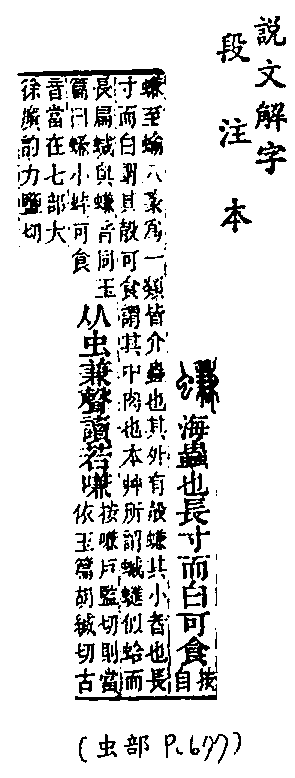 說文解字
段注本
海蟲也長寸而白可食
按自
蠊至蝓八篆爲一類皆介蟲也其外有殼蠊其小者也長
寸而白謂其殼可食謂其中肉也本艸所謂蝛䗯似蛤而
長扁蝛與蠊音同玉
篇曰蠊小蚌可食
从虫兼聲讀若嗛
按嗛戶監切則當
依玉篇胡緘切古
音當在七部大
徐廣韵力鹽切
(虫部 P.677)